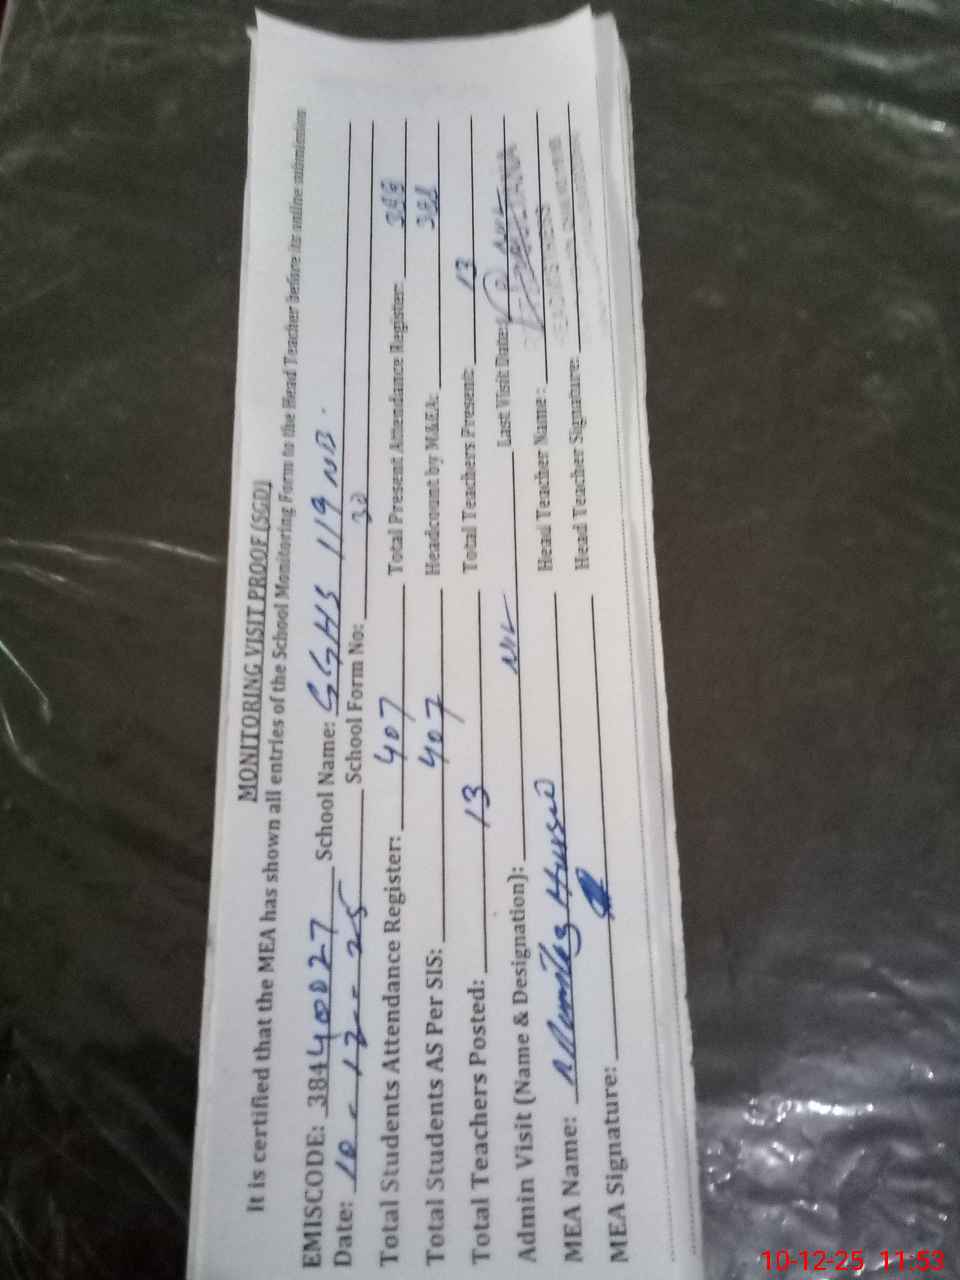 MONITORING VISIT PROOF (SGD)
It is certified that the MEA has shown all entries of the School Monitoring Form to the Head Teacher before its online submission
EMISCODE: 38440027 School Name: GGHS 119 NB.
Date: 10-12-25 School Form No: 30
Total Students Attendance Register: 407 Total Present Attendance Register:
Total Students AS Per SIS: 407 Headcount by M&EA:
Total Teachers Posted: 13 Total Teachers Present: 13
Admin Visit (Name & Designation): NIL Last Visit Date:
MEA Name: Head Teacher Name:
MEA Signature: Head Teacher Signature:
10-12-25 11:53